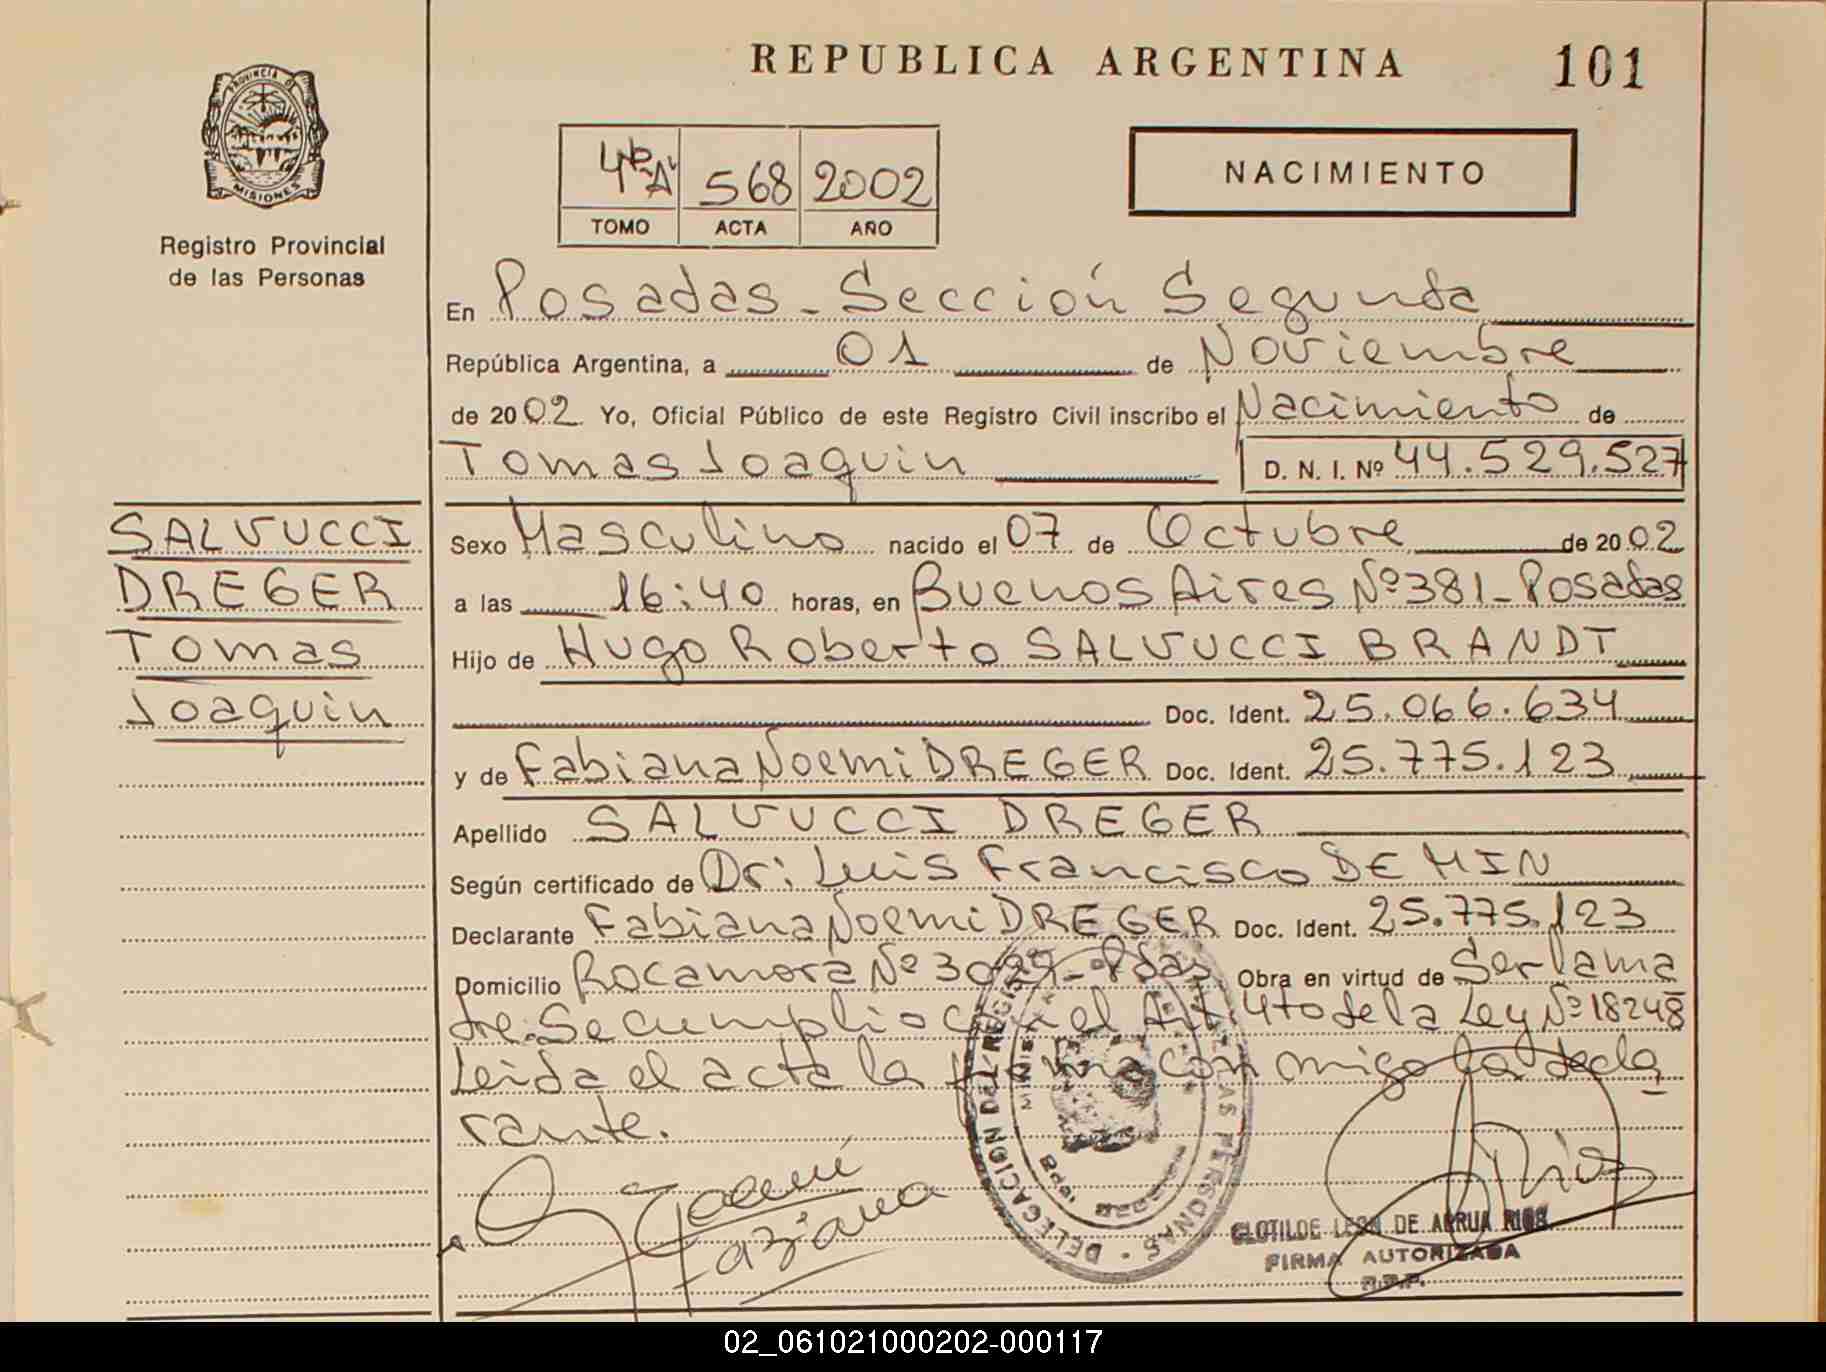 REPUBLICA ARGENTINA
101
PROVINCIA DE
MISIONES
Registro Provincial
de las Personas
4º "A" 568 2002
TOMO ACTA AÑO
NACIMIENTO
En Posadas - Sección Segunda
República Argentina, a 01 de Noviembre
de 2002 Yo, Oficial Público de este Registro Civil inscribo el Nacimiento de
Tomas Joaquin D. N. I. Nº 44.529.527
SALVUCCI
DREGER
Tomas
Joaquin
Sexo Masculino nacido el 07 de Octubre de 2002
a las 16:40 horas, en Buenos Aires Nº 381 - Posadas
Hijo de Hugo Roberto SALVUCCI BRANDT
Doc. Ident. 25.066.634
y de Fabiana Noemi DREGER Doc. Ident. 25.775.123
Apellido SALVUCCI DREGER
Según certificado de Dr: Luis Francisco DE MIN
Declarante Fabiana Noemi DREGER Doc. Ident. 25.775.123
Domicilio Rocamora Nº 3029 - Pdas Obra en virtud de Ser la ma
dre. Se cumplio con el Art 4to de la Ley Nº 18248
Leida el acta la firma con migo la decla
rante.
DELEGACION DEL REGISTRO LAS PERSONAS
CLOTILDE LEON DE ARRUA RIOS
FIRMA AUTORIZADA
R.P.P.
02_061021000202-000117